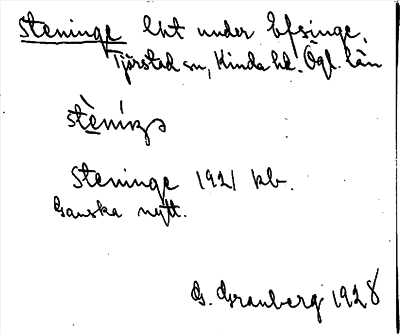 Steninge lht under Efsinge,
Tjärstad sn, Kinda hd. Ögl. län
Steninge 1921 kb.
Ganska nytt.
G. Granberg 1928